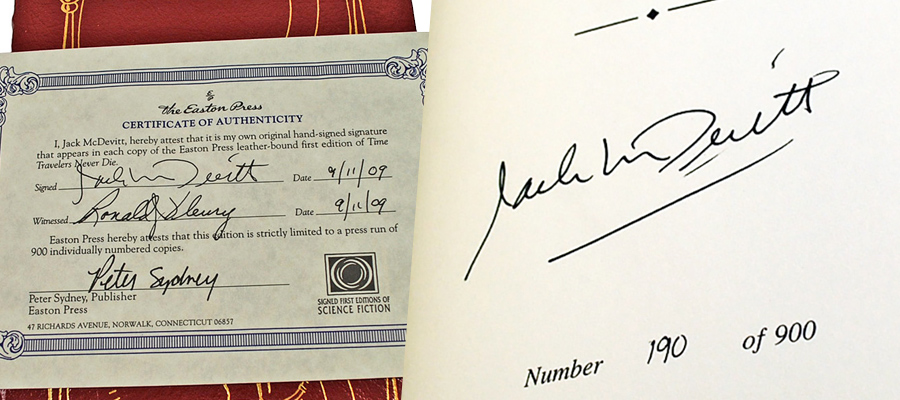 the Easton Press
CERTIFICATE OF AUTHENTICITY
I, Jack McDevitt, hereby attest that it is my own original hand-signed signature
that appears in each copy of the Easton Press leather-bound first edition of Time
Travelers Never Die.
Signed Jack McDevitt Date 9/11/09
Witnessed Ronald Date 9/11/09
Easton Press hereby attests that this edition is strictly limited to a press run of
900 individually numbered copies.
Peter Sydney
Peter Sydney, Publisher
Easton Press
47 RICHARDS AVENUE, NORWALK, CONNECTICUT 06857
SIGNED FIRST EDITIONS OF
SCIENCE FICTION
Jack McDevitt
Number 190 of 900